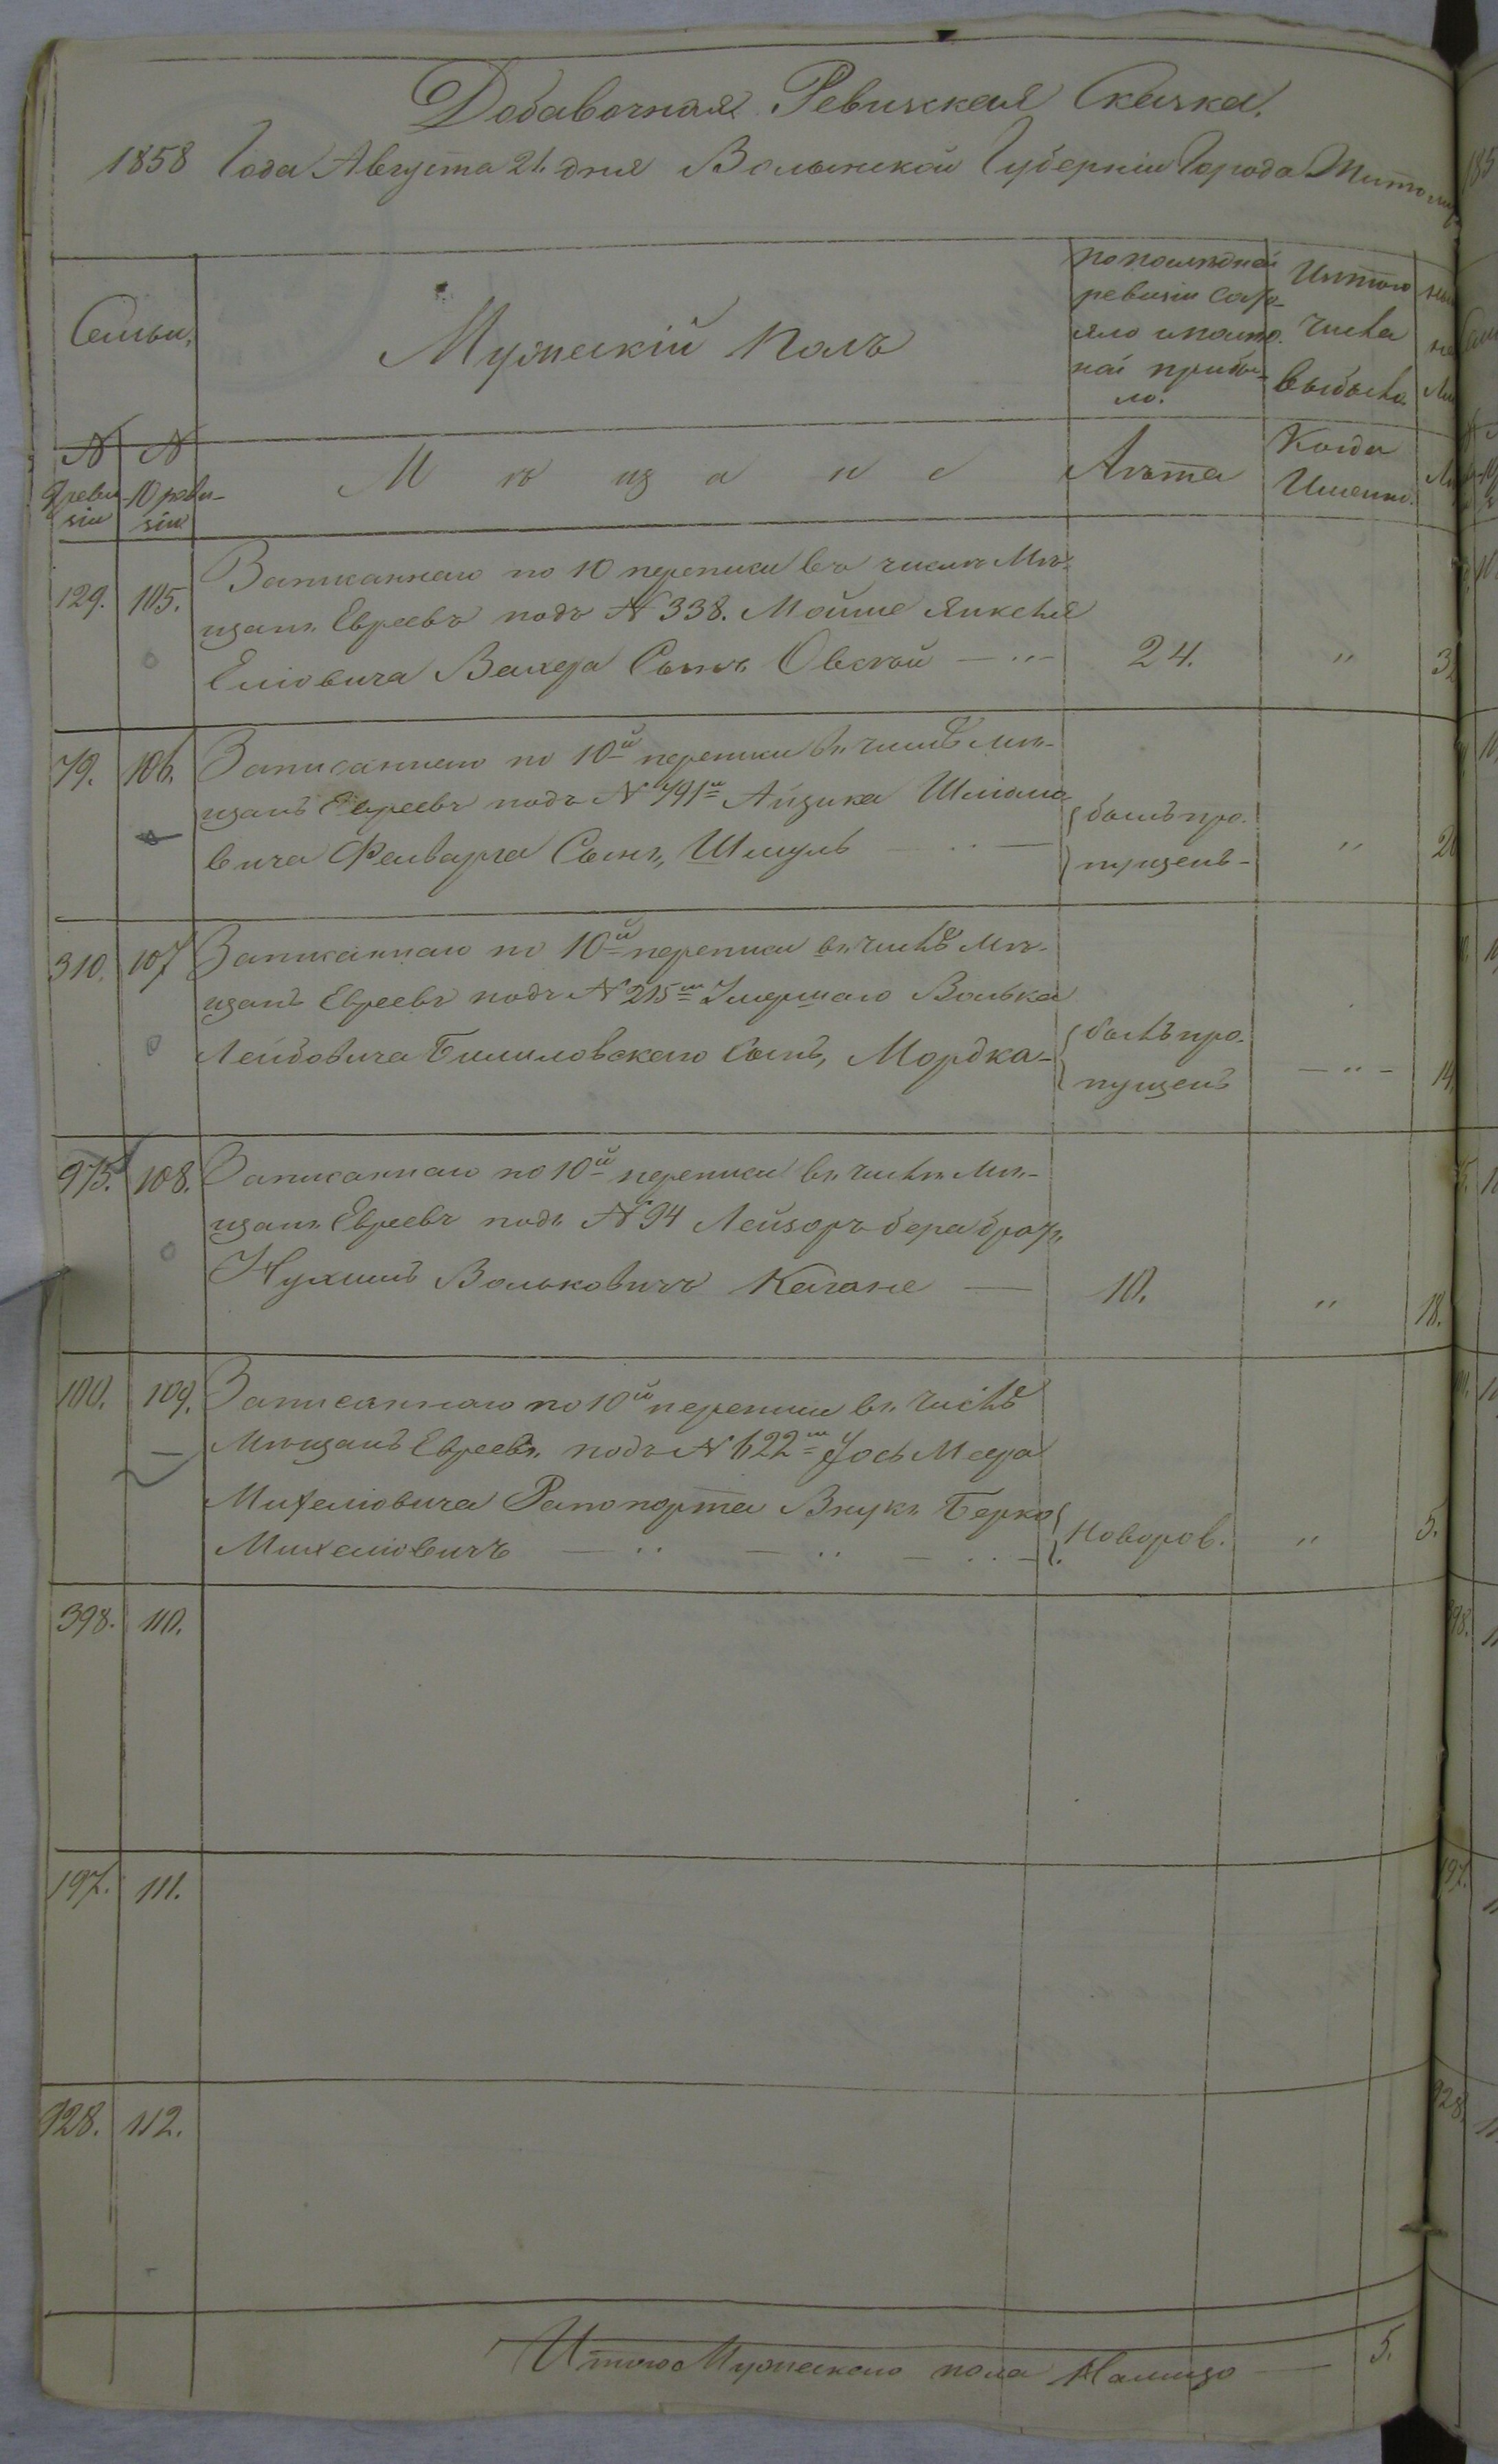 Добавочная Ревизская Сказка.
1858 Года Августа 21. дня Волынской Губерніи Города Житомира
Семьи,
Мужескій Полъ
по послѣдней
ревизіи состо-
яло и послѣ
ней прибы-
ло.
Изъ того
числа
выбыло
№ 9 реви-
зіи
№ 10 реви-
зіи
Мѣщане
Лѣта
Когда
Именно.
129. 105. Записаннаго по 10 переписи въ числѣ Мѣ-
щанъ Евреевъ подъ № 338. Мойше Янкеля
Еліовича Сынъ Овсѣй — 24. " 3
79. 106. Записаннаго по 10й переписи въ числѣ мѣ-
щанъ Евреевъ подъ № 791м Айзика Шліомо-
вича Файварга Сынъ, Шмуль — былъ про-
пущенъ - " 2
310. 107 Записаннаго по 10й переписи въ числѣ Мѣ-
щанъ Евреевъ подъ № 215м Умершаго Волька
Лейбовича Сынъ, Мордка - былъ про-
пущенъ — " — 14
975. 108. Записаннаго по 10й переписи въ числѣ Мѣ-
щанъ Евреевъ подъ № 94 Лейзоръ бера братъ
Нухимъ Вольковичъ Кагане — 10. " 18.
100. 109. Записаннаго по 10й переписи въ числѣ
Мѣщанъ Евреевъ подъ № 622м Іось Меера
Михелiовича Рапопорта Внукъ Берко
Михелiовичъ — Новорож. " 5.
398. 110.
197. 111.
928. 112.
Итого Мужескаго пола Налицо — 5.